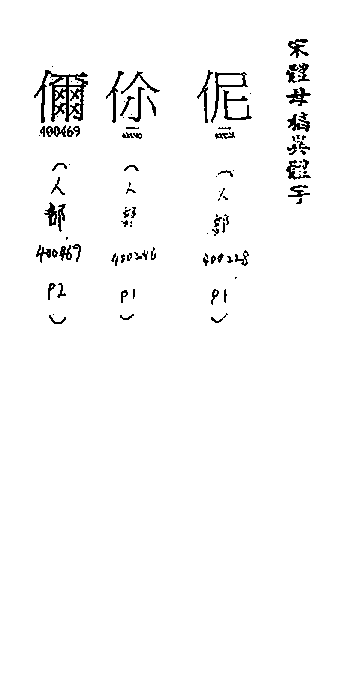 宋體母稿異體字
伲
（人部
400228
P1
）
伱
（人部
400246
P1
）
儞
400469
（人部
400469
P2
）